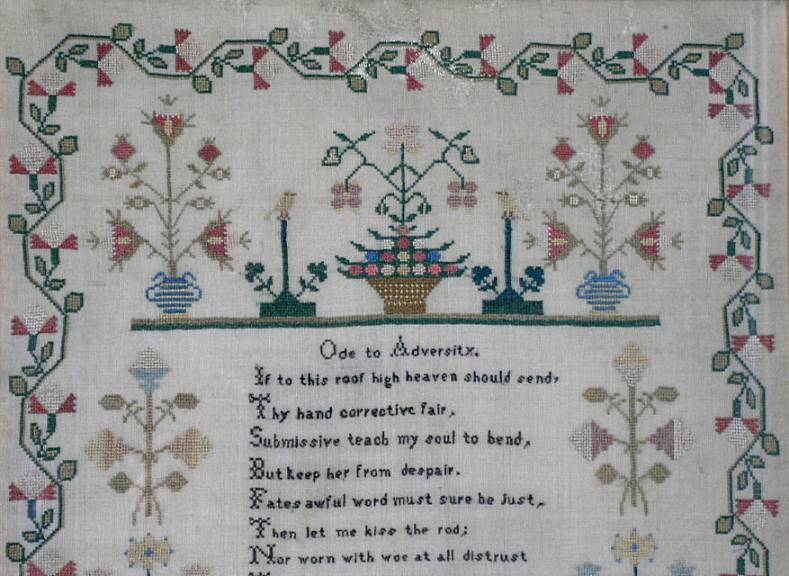 Ode to Adversity.
If to this roof high heaven should send,
Thy hand corrective fair,
Submissive teach my soul to bend,
But keep her from despair.
Fates awful word must sure be just,
Then let me kiss the rod;
Nor worn with woe at all distrust